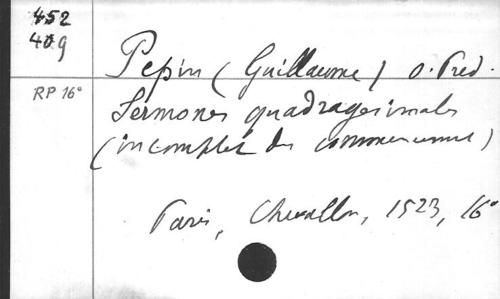 452
409
Pepin (Guillaume) o. Pred.
RP 16°
Sermones quadragesimales
(incomplet du commencement)
Paris, Chevallon, 1523, 16°